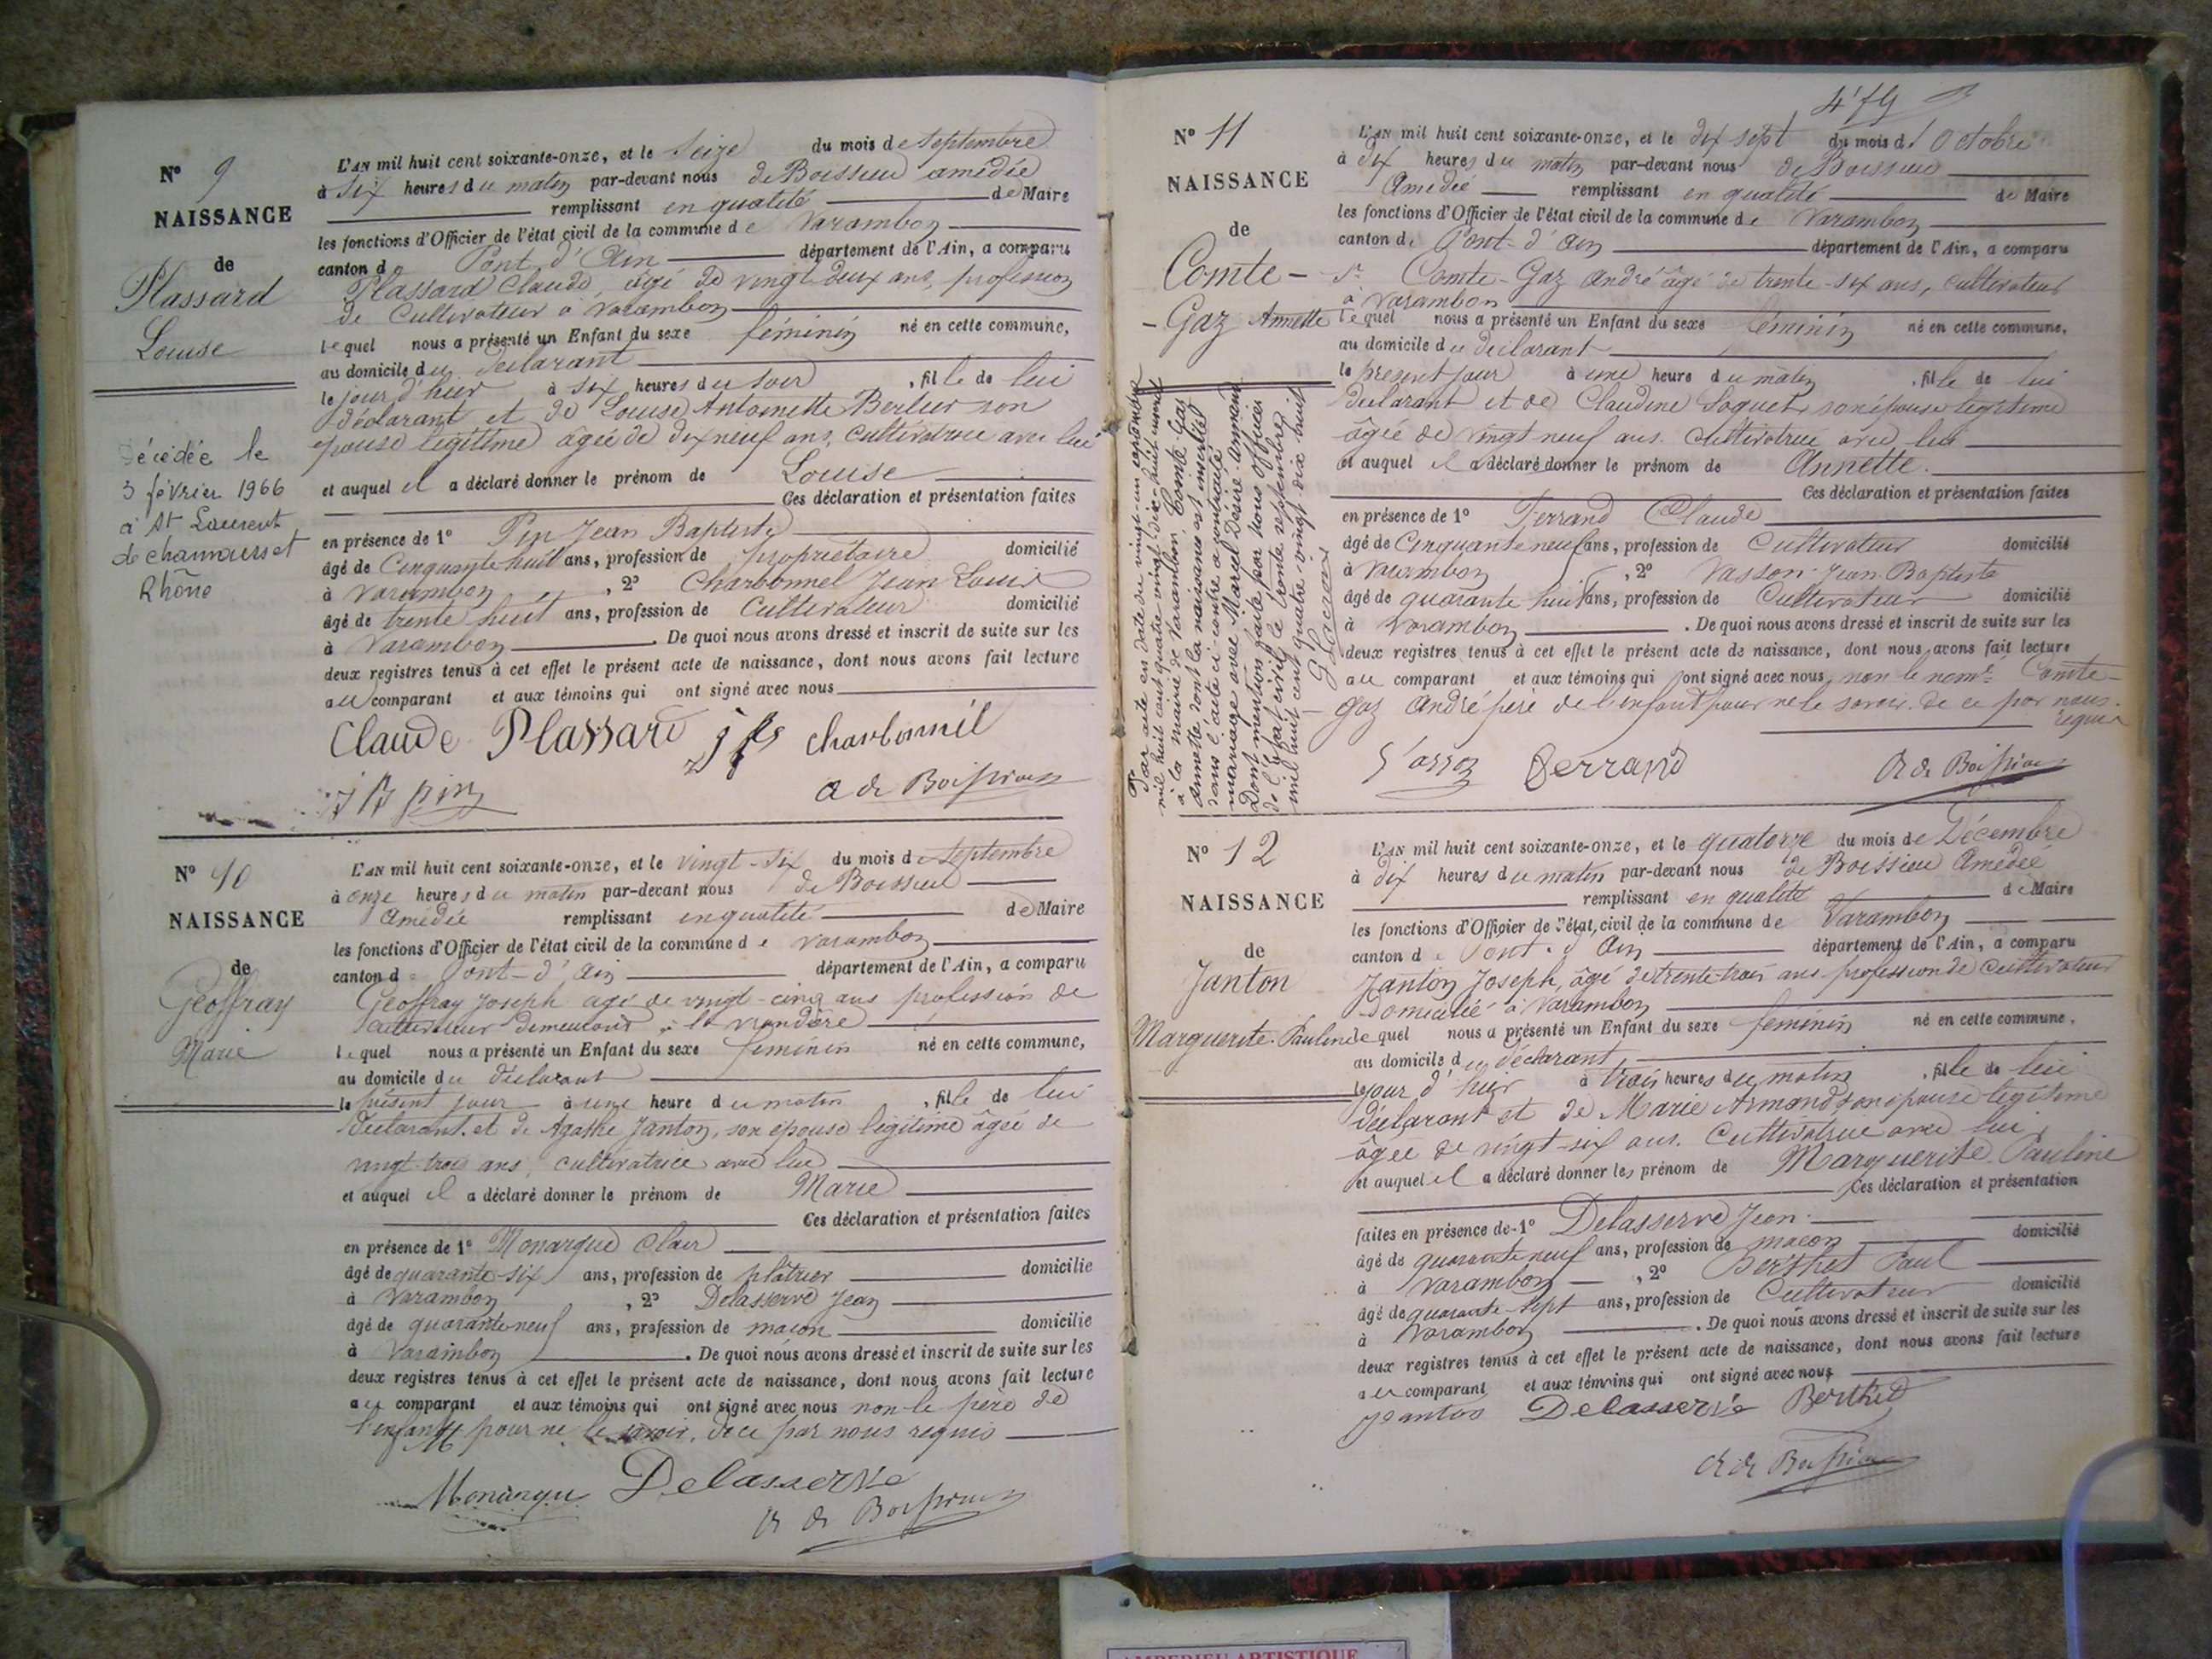 Nº 9
NAISSANCE
de
Plassard
Louise
Décédée le
3 février 1966
à St Laurent
de chamousset
Rhône
L'AN mil huit cent soixante-onze, et le Seize du mois de Septembre
à Six heures du matin par-devant nous de Boissieu amédée
remplissant en qualité de Maire
les fonctions d'Officier de l'état civil de la commune de Varambon
canton de Pont d'Ain département de l'Ain, a comparu
Plassard Claude, âgé de vingt deux ans, profession
de Cultivateur à Varambon
lequel nous a présenté un Enfant du sexe féminin né en cette commune,
au domicile du déclarant
le jour d'hier à six heures du soir, fille de lui
déclarant et de Louise Antoinette Berlier son
épouse légitime âgée de dix neuf ans, cultivatrice avec lui
et auquel il a déclaré donner le prénom de Louise
Ces déclaration et présentation faites
en présence de 1º Pin Jean Baptiste
âgé de Cinquante huit ans, profession de propriétaire domicilié
à Varambon, 2º Charbonnel Jean Louis
âgé de trente huit ans, profession de Cultivateur domicilié
à Varambon. De quoi nous avons dressé et inscrit de suite sur les
deux registres tenus à cet effet le présent acte de naissance, dont nous avons fait lecture
au comparant et aux témoins qui ont signé avec nous
Claude Plassard charbonnil
pin a de Boissieu
Nº 10
NAISSANCE
de
Geoffray
Marie
L'AN mil huit cent soixante-onze, et le vingt-six du mois de Septembre
à onze heures du matin par-devant nous de Boissieu
Amédée remplissant en qualité de Maire
les fonctions d'Officier de l'état civil de la commune de Varambon
canton de Pont-d'Ain département de l'Ain, a comparu
Geoffray Joseph âgé de vingt-cinq ans profession de
cultivateur demeurant à la vrandière
lequel nous a présenté un Enfant du sexe féminin né en cette commune,
au domicile du déclarant
le présent jour à une heure du matin, fille de lui
déclarant et de Agathe Janton, son épouse légitime âgée de
vingt-trois ans, cultivatrice avec lui
et auquel il a déclaré donner le prénom de Marie
Ces déclaration et présentation faites
en présence de 1º Monarque Clair
âgé de quarante-six ans, profession de plâtrier domicilié
à Varambon, 2º Delasserve Jean
âgé de quarante neuf ans, profession de maçon domicilié
à Varambon. De quoi nous avons dressé et inscrit de suite sur les
deux registres tenus à cet effet le présent acte de naissance, dont nous avons fait lecture
au comparant et aux témoins qui ont signé avec nous non le père de
l'enfant pour ne le savoir, de ce par nous requis
Monarque Delasserve
A de Boissieu
479
Nº 11
NAISSANCE
de
Comte-
-Gaz Annette
Par acte en date du vingt-un septembre
mil huit cent quatre vingt-dix-huit reçu
à la mairie de Varambon Comte-Gaz
Annette dont la naissance est inscrite
dans l'acte ci-contre a contracté
mariage avec Marcel Désiré Armand
Dont mention faite par nous officier
de l'état civil le trente septembre
mil huit cent quatre-vingt-dix-huit
L'AN mil huit cent soixante-onze, et le dix sept du mois d'Octobre
à dix heures du matin par-devant nous de Boissieu
Amédée remplissant en qualité de Maire
les fonctions d'Officier de l'état civil de la commune de Varambon
canton de Pont-d'Ain département de l'Ain, a comparu
Sr Comte-Gaz André âgé de trente-six ans, cultivateur
à Varambon
lequel nous a présenté un Enfant du sexe féminin né en cette commune,
au domicile du déclarant
le présent jour à une heure du matin, fille de lui
déclarant et de Claudine Loquet, son épouse légitime
âgée de vingt neuf ans. Cultivatrice avec lui
et auquel il a déclaré donner le prénom de Annette.
Ces déclaration et présentation faites
en présence de 1º Ferrand Claude
âgé de Cinquante neuf ans, profession de Cultivateur domicilié
à Varambon, 2º Vasson Jean-Baptiste
âgé de quarante huit ans, profession de Cultivateur domicilié
à Varambon. De quoi nous avons dressé et inscrit de suite sur les
deux registres tenus à cet effet le présent acte de naissance, dont nous avons fait lecture
au comparant et aux témoins qui ont signé avec nous, non le nommé Comte-
-Gaz André père de l'enfant pour ne le savoir de ce par nous
requis
Ferrand A de Boissieu
Nº 12
NAISSANCE
de
Janton
Marguerite-Pauline
L'AN mil huit cent soixante-onze, et le quatorze du mois de Décembre
à dix heures du matin par-devant nous de Boissieu Amédée
remplissant en qualité de Maire
les fonctions d'Officier de l'état civil de la commune de Varambon
canton de Pont-d'Ain département de l'Ain, a comparu
Janton Joseph, âgé de trente-trois ans profession de Cultivateur
domicilié à Varambon
lequel nous a présenté un Enfant du sexe féminin né en cette commune,
au domicile du déclarant
le jour d'hier à trois heures du matin, fille de lui
déclarant et de Marie Armand son épouse légitime
âgée de vingt-six ans. Cultivatrice avec lui
et auquel il a déclaré donner les prénom de Marguerite Pauline
Ces déclaration et présentation
faites en présence de 1º Delasserve Jean
âgé de quarante neuf ans, profession de maçon domicilié
à Varambon, 2º Berthet Paul
âgé de quarante-sept ans, profession de Cultivateur domicilié
à Varambon. De quoi nous avons dressé et inscrit de suite sur les
deux registres tenus à cet effet le présent acte de naissance, dont nous avons fait lecture
au comparant et aux témoins qui ont signé avec nous
Janton Delasserve Berthet
A de Boissieu
AMBERIEU ARTISTIQUE